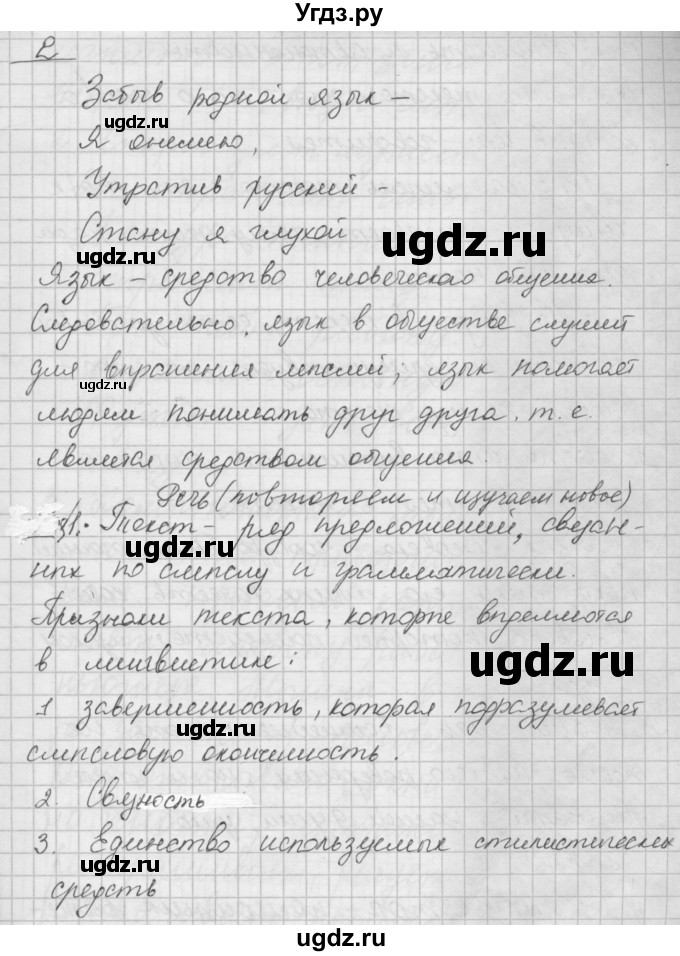 Угдз.ру
2
Забыв родной язык –
ugdz.ru
Я онемею,
Утратив русский –
ugdz.ru
Стану я глухой
ugdz.ru
Язык – средство человеческого общения.
ugdz.ru
Следовательно, язык в обществе служит
для выражения мыслей; язык помогает
ugdz.ru
людям понимать друг друга, т.е.
является средством общения.
ugdz.ru
Речь (повторяем и изучаем новое)
§1. Текст – ряд предложений, связан-
ugdz.ru
ных по смыслу и грамматически.
Признаки текста, которые выделяются
в лингвистике:
ugdz.ru
ugdz.ru
1 завершенность, которая подразумевает
ugdz.ru
смысловую оконченность.
2. Связность
ugdz.ru
3. Единство используемых стилистических
ugdz.ru
средств
ugdz.ru